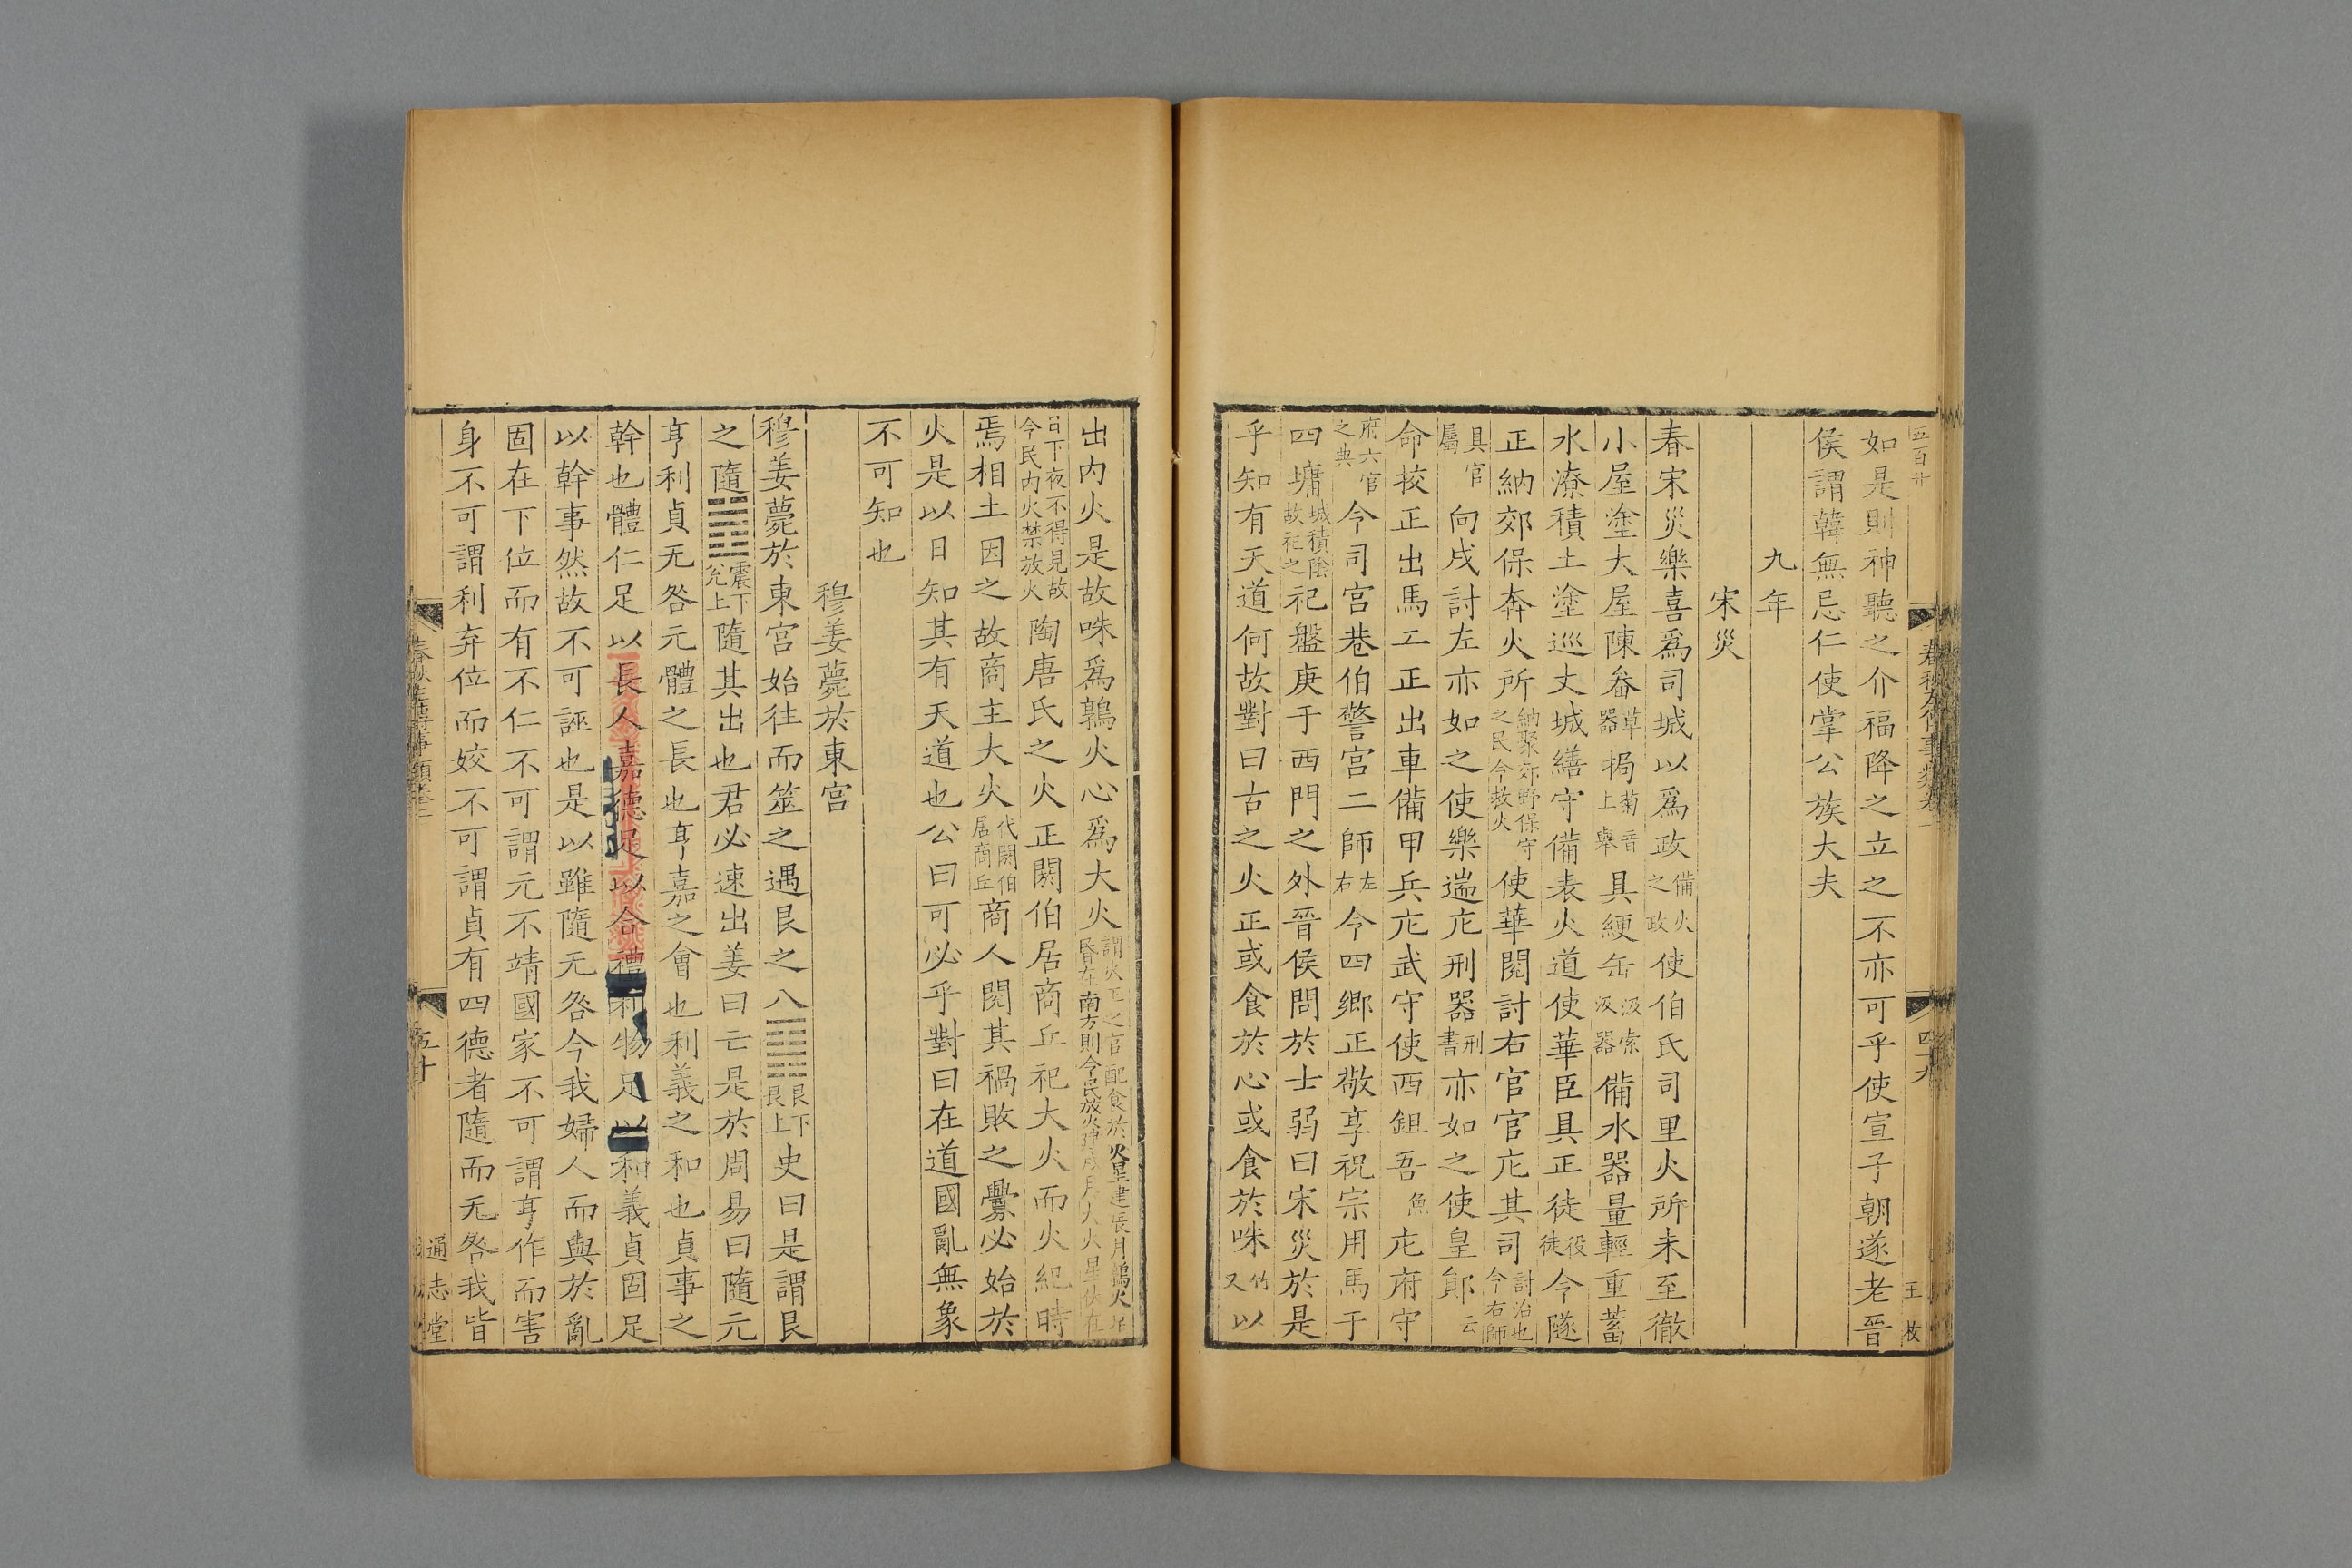 五百廿
如是則神聽之介福降之立之不亦可乎使宣子朝遂老晉
侯謂韓無忌仁使掌公族大夫
九年
宋災
春宋災樂喜爲司城以爲政備火之政使伯氏司里火所未至徹
小屋塗大屋陳畚草器挶菊音上舉具綆缶汲索汲器備水器量輕重蓄
水潦積土塗巡丈城繕守備表火道使華臣具正徒役徒令隧
正納郊保奔火所納聚郊野保守之民令救火使華閱討右官官庀其司討治也令右師
具官屬向戌討左亦如之使樂遄庀刑器刑書亦如之使皇鄖云
命校正出馬工正出車備甲兵庀武守使西鉏吾魚庀府守
府六官之典令司宮巷伯警宮二師左右令四鄉正敬享祝宗用馬于
四墉城積陰故祀之祀盤庚于西門之外晉侯問於士弱曰宋災於是
乎知有天道何故對曰古之火正或食於心或食於咮竹又以
王 枚
四十九
出內火是故咮爲鶉火心爲大火謂火正之官配食於火星建辰月鶉火星昏在南方則令民放火建戌月大火星伏在
日下夜不得見故今民內火禁放火陶唐氏之火正閼伯居商丘祀大火而火紀時
焉相土因之故商主大火代閼伯居商丘商人閱其禍敗之釁必始於
火是以日知其有天道也公曰可必乎對曰在道國亂無象
不可知也
穆姜薨於東宮
穆姜薨於東宮始往而筮之遇艮之八艮下艮上史曰是謂艮
之隨震下兌上隨其出也君必速出姜曰亡是於周易曰隨元
亨利貞无咎元體之長也亨嘉之會也利義之和也貞事之
幹也體仁足以長人嘉德足以合禮利物足以和義貞固足
以幹事然故不可誣也是以雖隨无咎今我婦人而與於亂
固在下位而有不仁不可謂元不靖國家不可謂亨作而害
身不可謂利弃位而姣不可謂貞有四德者隨而无咎我皆
五十
通志堂